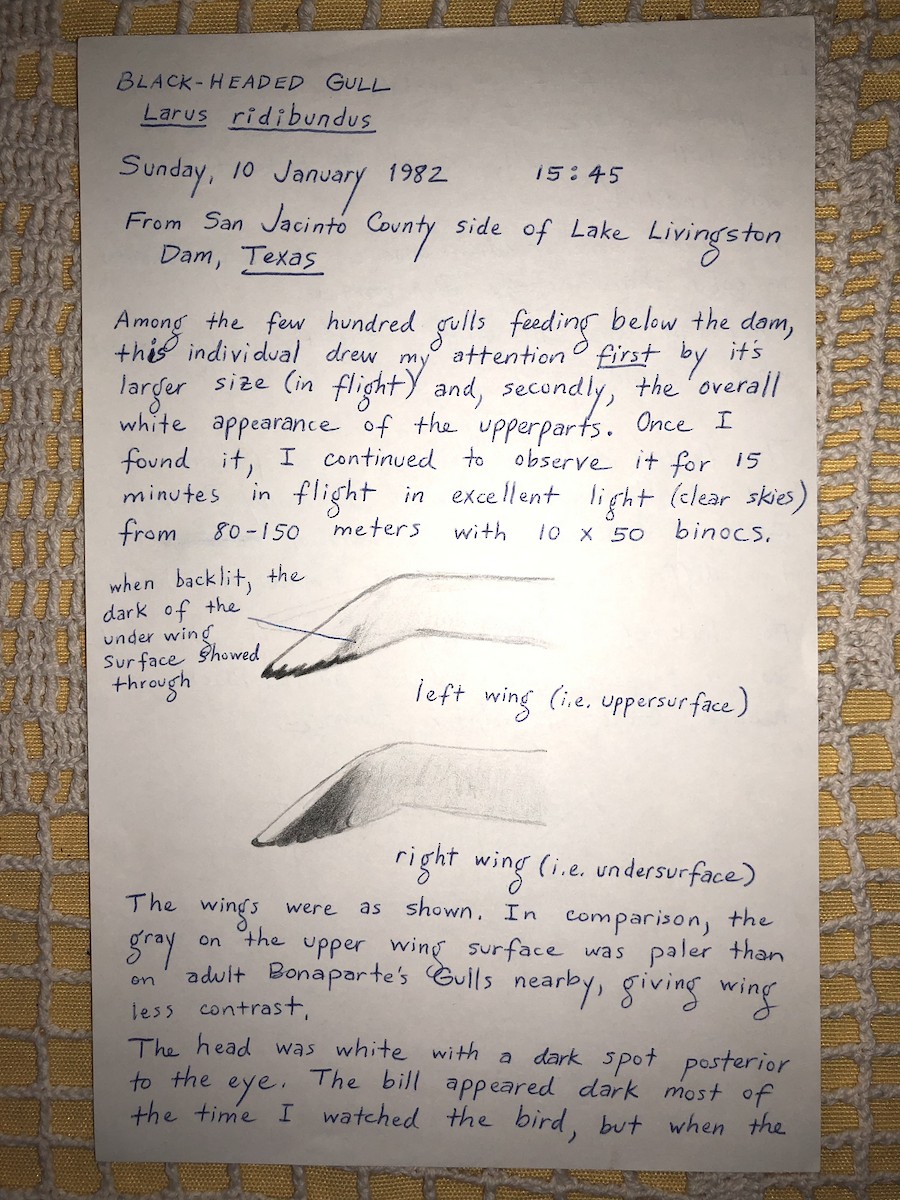 BLACK-HEADED GULL
Larus ridibundus
Sunday, 10 January 1982 15:45
From San Jacinto County side of Lake Livingston
Dam, Texas
Among the few hundred gulls feeding below the dam,
this individual drew my attention first by it's
larger size (in flight) and, secondly, the overall
white appearance of the upperparts. Once I
found it, I continued to observe it for 15
minutes in flight in excellent light (clear skies)
from 80-150 meters with 10 x 50 binocs.
when backlit, the
dark of the
under wing
surface showed
through
left wing (i.e. uppersurface)
right wing (i.e. undersurface)
The wings were as shown. In comparison, the
gray on the upper wing surface was paler than
on adult Bonaparte's Gulls nearby, giving wing
less contrast.
The head was white with a dark spot posterior
to the eye. The bill appeared dark most of
the time I watched the bird, but when the